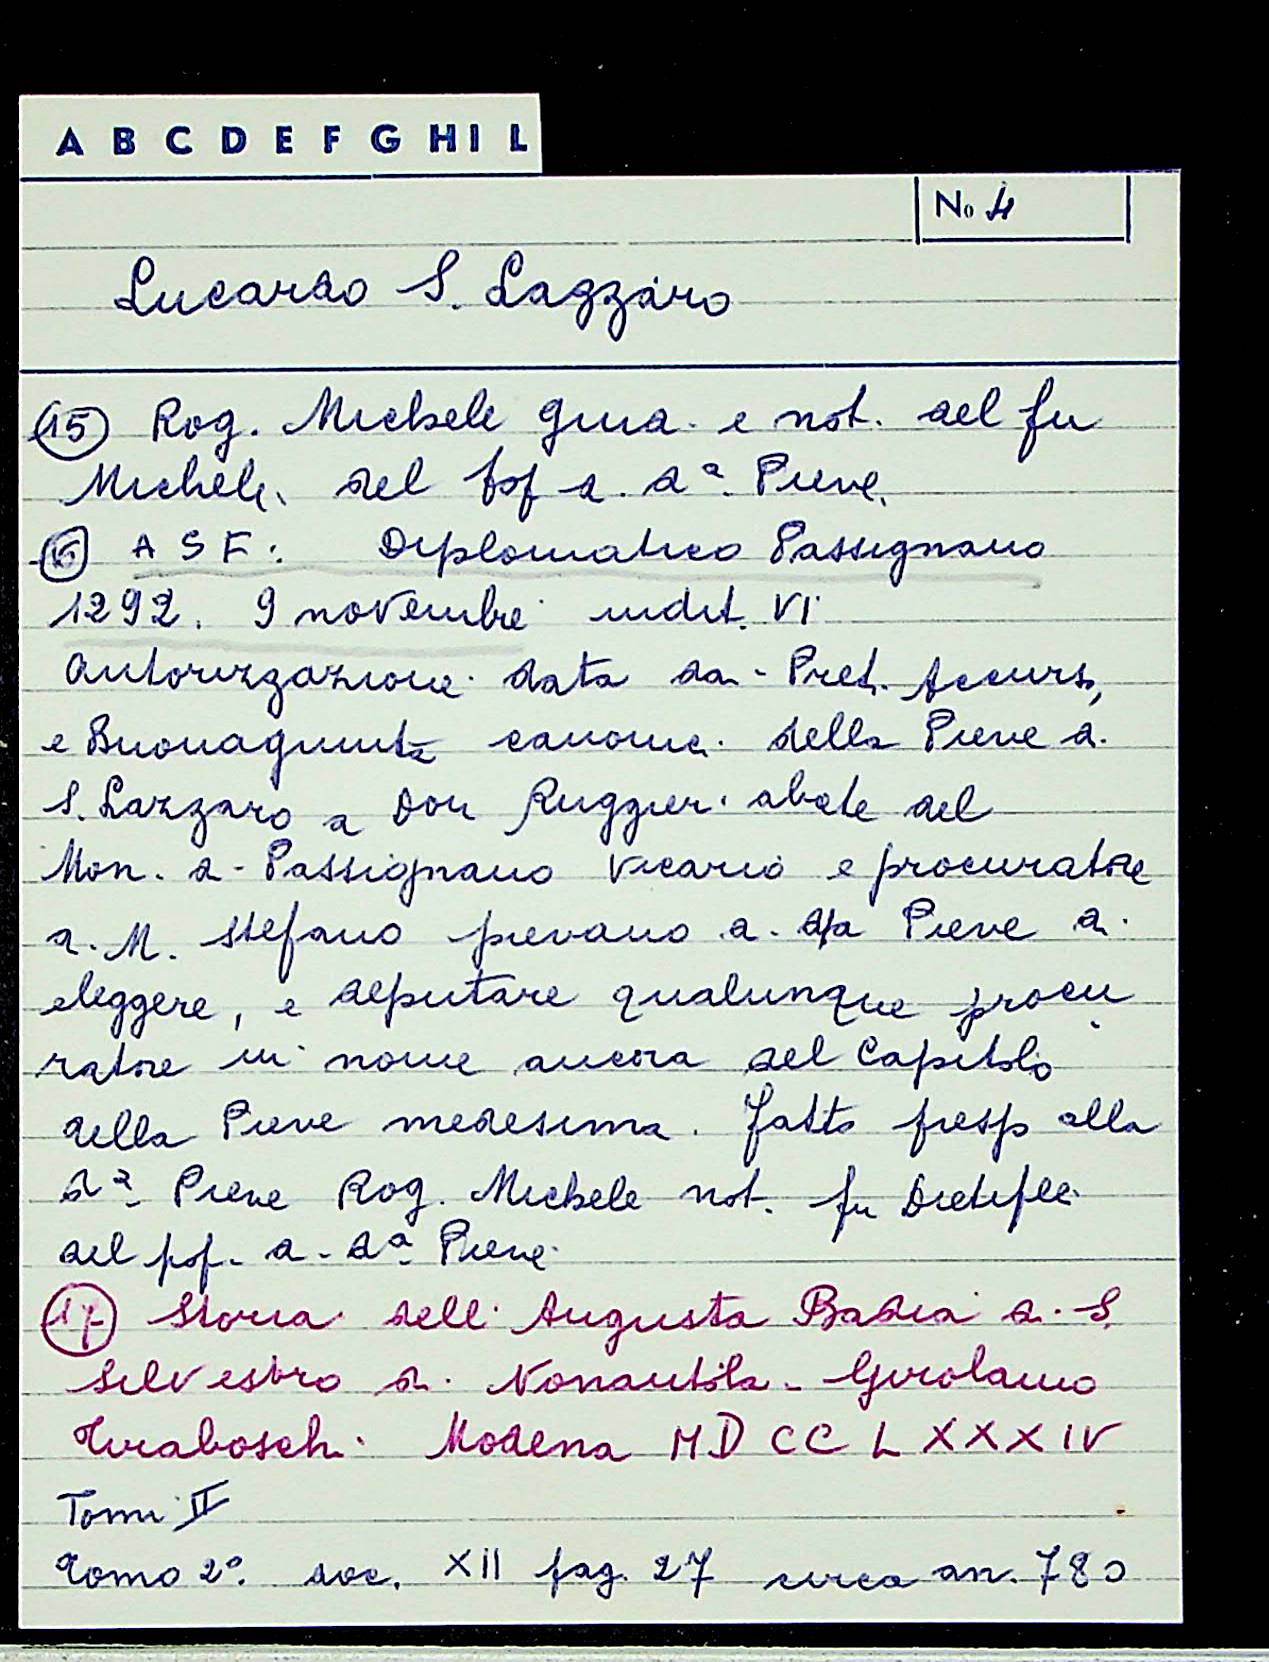 A B C D E F G H I L
No 4
Lucardo S. Lazzaro
15 Rog. Michele giud. e not. del fu
Michele del pop d. da. Pieve
16 A S F: Diplomatico Passignano
1292. 9 novembre indit. VI
autorizzazione data da Preti Accurs,
e Buonagiunta canonici della Pieve d.
S. Lazzaro a Don Ruggieri abate del
Mon. d. Passignano Vicario e procuratore
d. M. Stefano pievano d. da Pieve d.
eleggere, e deputare qualunque procu
ratore in nome ancora del Capitolo
della Pieve medesima. Fatto presso alla
da. Pieve Rog. Michele not. fu
del pop. d. da. Pieve
17 Storia dell' Augusta Badia d. S.
Silvestro d. Nonantola - Girolamo
Tiraboschi Modena MDCCLXXXIV
Tomi II
Tomo 2º. doc. XII pag. 27 circa an. 780